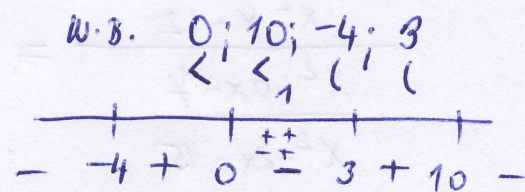 N.B. 0; 10; -4; 3
< < ( (
1
++
-+
- -4 + 0 - 3 + 10 -